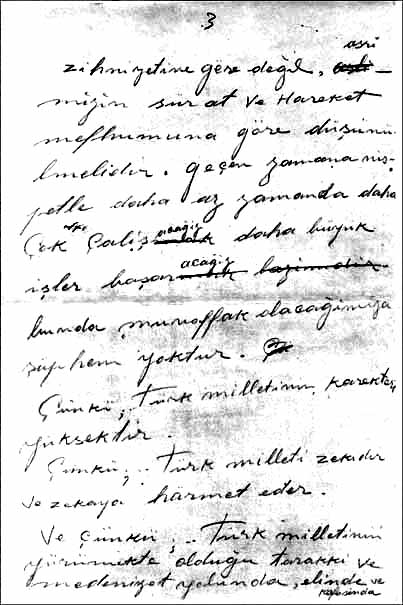 3
zihniyetine göre değil, asri
mizin sür at ve Hareket
mefhumuna göre düşünü
lmelidir. geçen zamana nis
petle daha az zamanda daha
Çok Çalışacağız daha büyük
işler başaracağız
bunda muvaffak olacağımıza
şüphem yoktur.
Çünkü, Türk milletinin, karekteri
yüksektir.
Çünkü, Türk milleti zekidir
ve zekaya hürmet eder.
Ve Çünkü, Türk milletinin
yürümekte olduğu terakki ve
medeniyet yolunda, elinde ve
kafasında